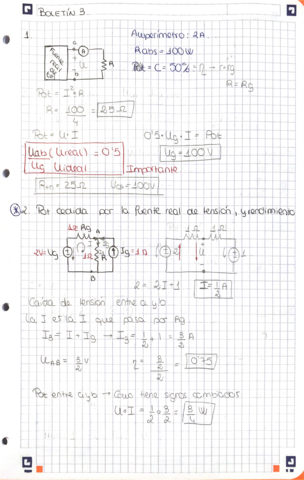 BOLETÍN 3.
1.
Amperímetro: 2A
Rabs = 100W
Pot = C = 50% = η → r=rg
R = Rg
A
A
U
R
B
Pot = I²·R
R = 100/4 = 25Ω
Pot = U·I
0'5·Ug·I = Pot
Uab (Ureal) = 0'5
Ug Uideal
Ug = 100V
Importante
= 25Ω
= 100V
2. Pot cedida por la fuente real de tensión, y rendimiento
1Ω Rg
A
2V = Ug
1Ω
R
Ig = 1Ω
B
1Ω
1Ω
2
U
1
2 = 2I + 1
I = 1/2 A
Caída de tensión entre a y b
La I es la I que pasa por Rg
I3 = I + Ig → I3 = 1/2 + 1 = 3/2 A
UAB = 3/2 V
η = 3/2 / 2 = 0'75
Pot entre a y b → Como tiene signos cambiados
U·I = 1/2 · 3/2 = 3/4 W